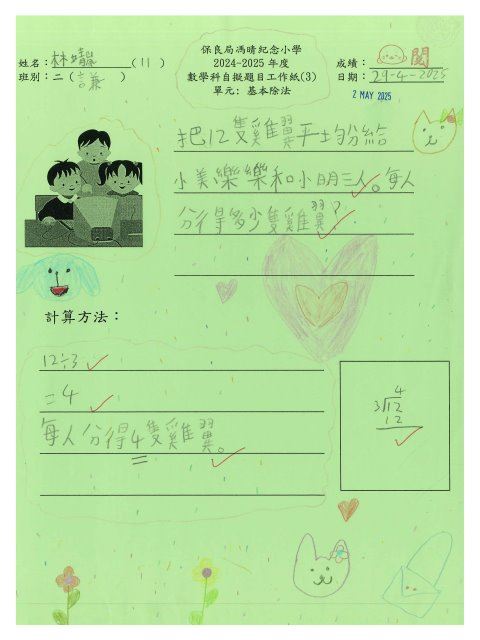 保良局馮晴紀念小學
2024-2025 年度
數學科自擬題目工作紙(3)
單元: 基本除法
姓名: 林靖靄 (11)
班別: 二 (言兼)
成績: 閱
日期: 29-4-2025
2 MAY 2025
把12隻雞翼平均分給
小美樂樂和小明三人。每人
分得多少隻雞翼?
計算方法:
12÷3
=4
每人分得4隻雞翼。
4
3√12
12